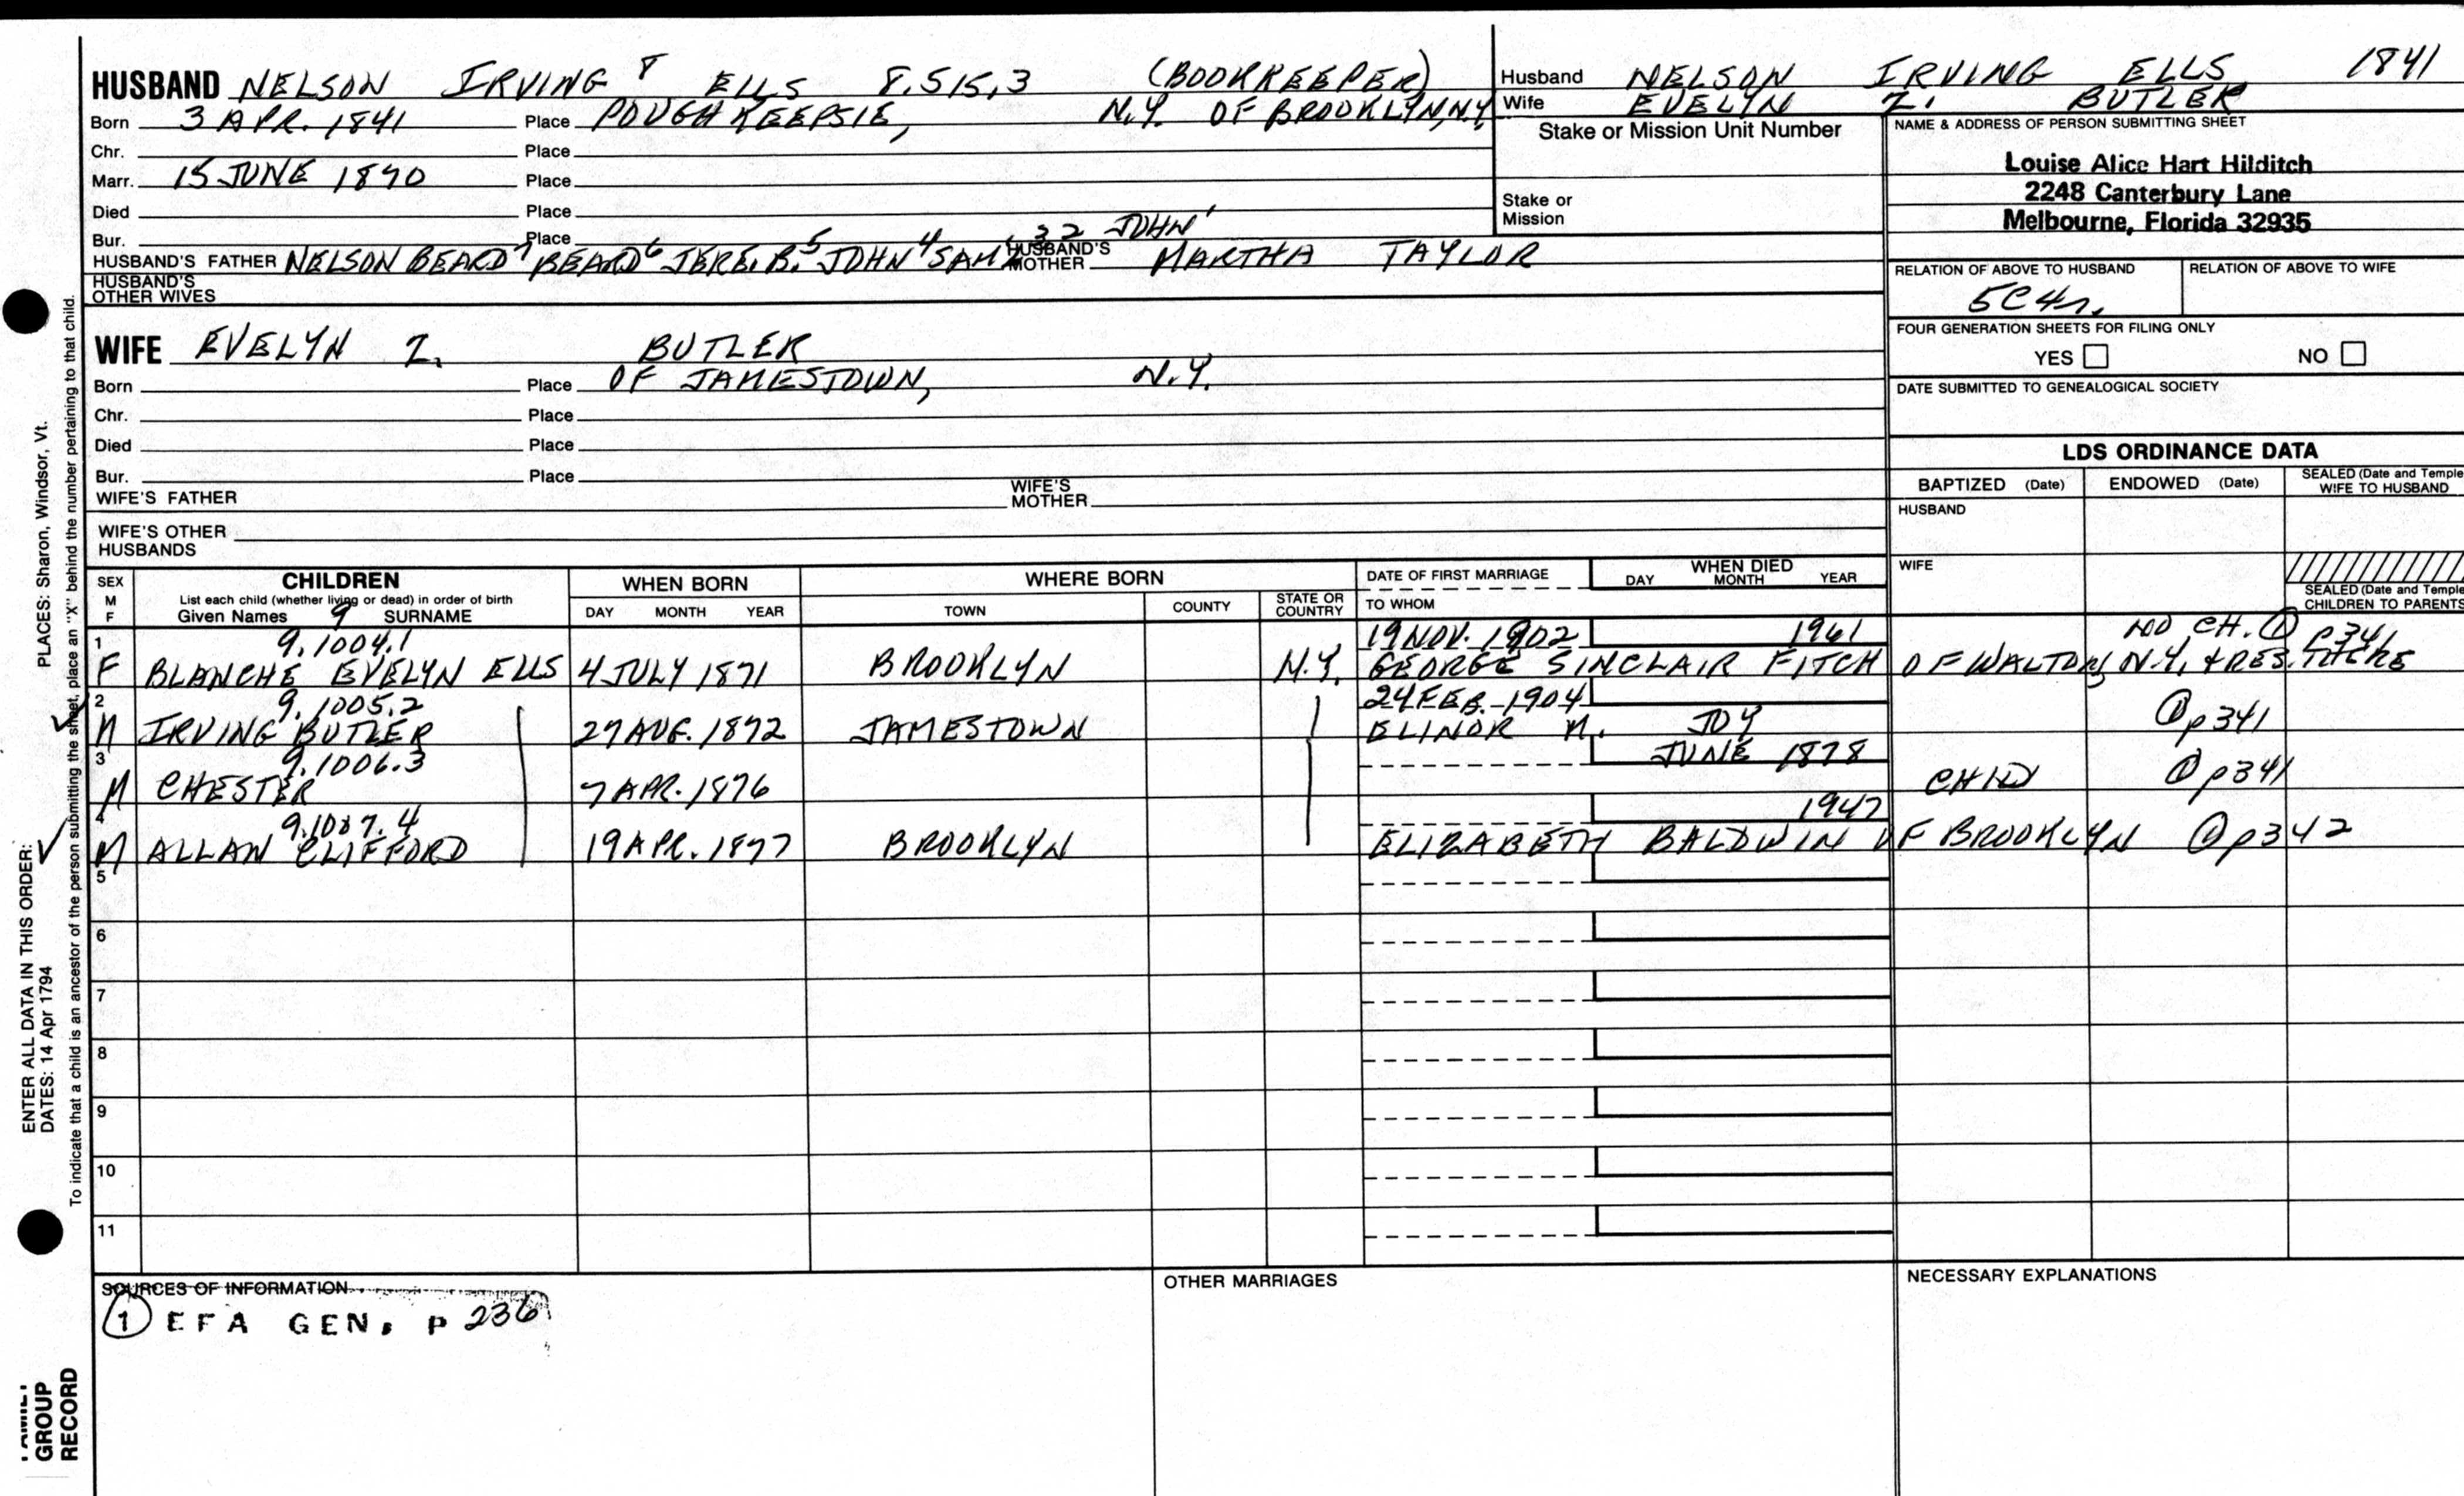 HUSBAND NELSON IRVING 8 ELLS 8.515.3 (BOOKKEEPER)
Born 3 APR. 1841 Place POUGHKEEPSIE, N.Y. OF BROOKLYN, N.Y.
Chr. Place
Marr. 15 JUNE 1870 Place
Died Place
Bur. Place
HUSBAND'S FATHER NELSON BEARD 7 BEARD 6 JERE. B. 5 JOHN 4 SAM 3 2 JOHN 1 HUSBAND'S MOTHER MARTHA TAYLOR
HUSBAND'S OTHER WIVES
Husband NELSON IRVING ELLS 1841
Wife EVELYN I. BUTLER
Stake or Mission Unit Number
Stake or Mission
NAME & ADDRESS OF PERSON SUBMITTING SHEET
Louise Alice Hart Hilditch
2248 Canterbury Lane
Melbourne, Florida 32935
RELATION OF ABOVE TO HUSBAND RELATION OF ABOVE TO WIFE
5C4r.
FOUR GENERATION SHEETS FOR FILING ONLY
YES NO
DATE SUBMITTED TO GENEALOGICAL SOCIETY
WIFE EVELYN I. BUTLER
Born Place OF JAMESTOWN, N.Y.
Chr. Place
Died Place
Bur. Place
WIFE'S FATHER WIFE'S MOTHER
WIFE'S OTHER HUSBANDS
LDS ORDINANCE DATA
BAPTIZED (Date) ENDOWED (Date) SEALED (Date and Temple
WIFE TO HUSBAND
HUSBAND
WIFE
SEALED (Date and Temple
CHILDREN TO PARENTS
SEX CHILDREN WHEN BORN WHERE BORN DATE OF FIRST MARRIAGE WHEN DIED
M List each child (whether living or dead) in order of birth DAY MONTH YEAR
F Given Names 9 SURNAME DAY MONTH YEAR TOWN COUNTY STATE OR COUNTRY TO WHOM
1 9.1004.1 19 NOV. 1902 1961 NO CH. ① p341
F BLANCHE EVELYN ELLS 4 JULY 1871 BROOKLYN N.Y. GEORGE SINCLAIR FITCH OF WALTON, N.Y. & RES. THERE
2 9.1005.2 24 FEB. 1904
M IRVING BUTLER 27 AUG. 1872 JAMESTOWN ELINOR M. JOY ① p341
3 9.1006.3 JUNE 1878
M CHESTER 7 APR. 1876 CHILD ① p341
4 9.1007.4 1947
M ALLAN CLIFFORD 19 APR. 1877 BROOKLYN ELIZABETH BALDWIN OF BROOKLYN ① p342
5
6
7
8
9
10
11
SOURCES OF INFORMATION
① EFA GEN. P 236
OTHER MARRIAGES
NECESSARY EXPLANATIONS
ENTER ALL DATA IN THIS ORDER:
DATES: 14 Apr 1794 PLACES: Sharon, Windsor, Vt.
To indicate that a child is an ancestor of the person submitting the sheet, place an "X" behind the number pertaining to that child.
FAMILY
GROUP
RECORD